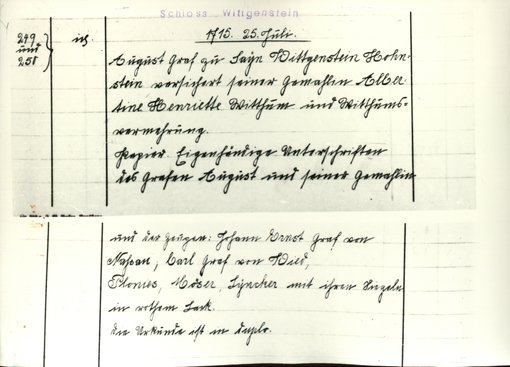 Schloss Wittgenstein
1715. 25. Juli.
249 und 251
ich
August Graf zu Sayn Wittgenstein Hohn-
stein, versichert seiner Gemahlin Alber-
tine Henriette Witthum und Witthums-
vermehrung.
Papier. Eigenhändige Unterschriften
des Grafen August und seiner Gemahlin
und der Zeugen: Johann Ernst Graf von
Nassau, Carl Graf von Wied,
Thomes, Möser, Syncker mit ihren Siegeln
in rothem Lack.
die Urkunde ist in duplo.